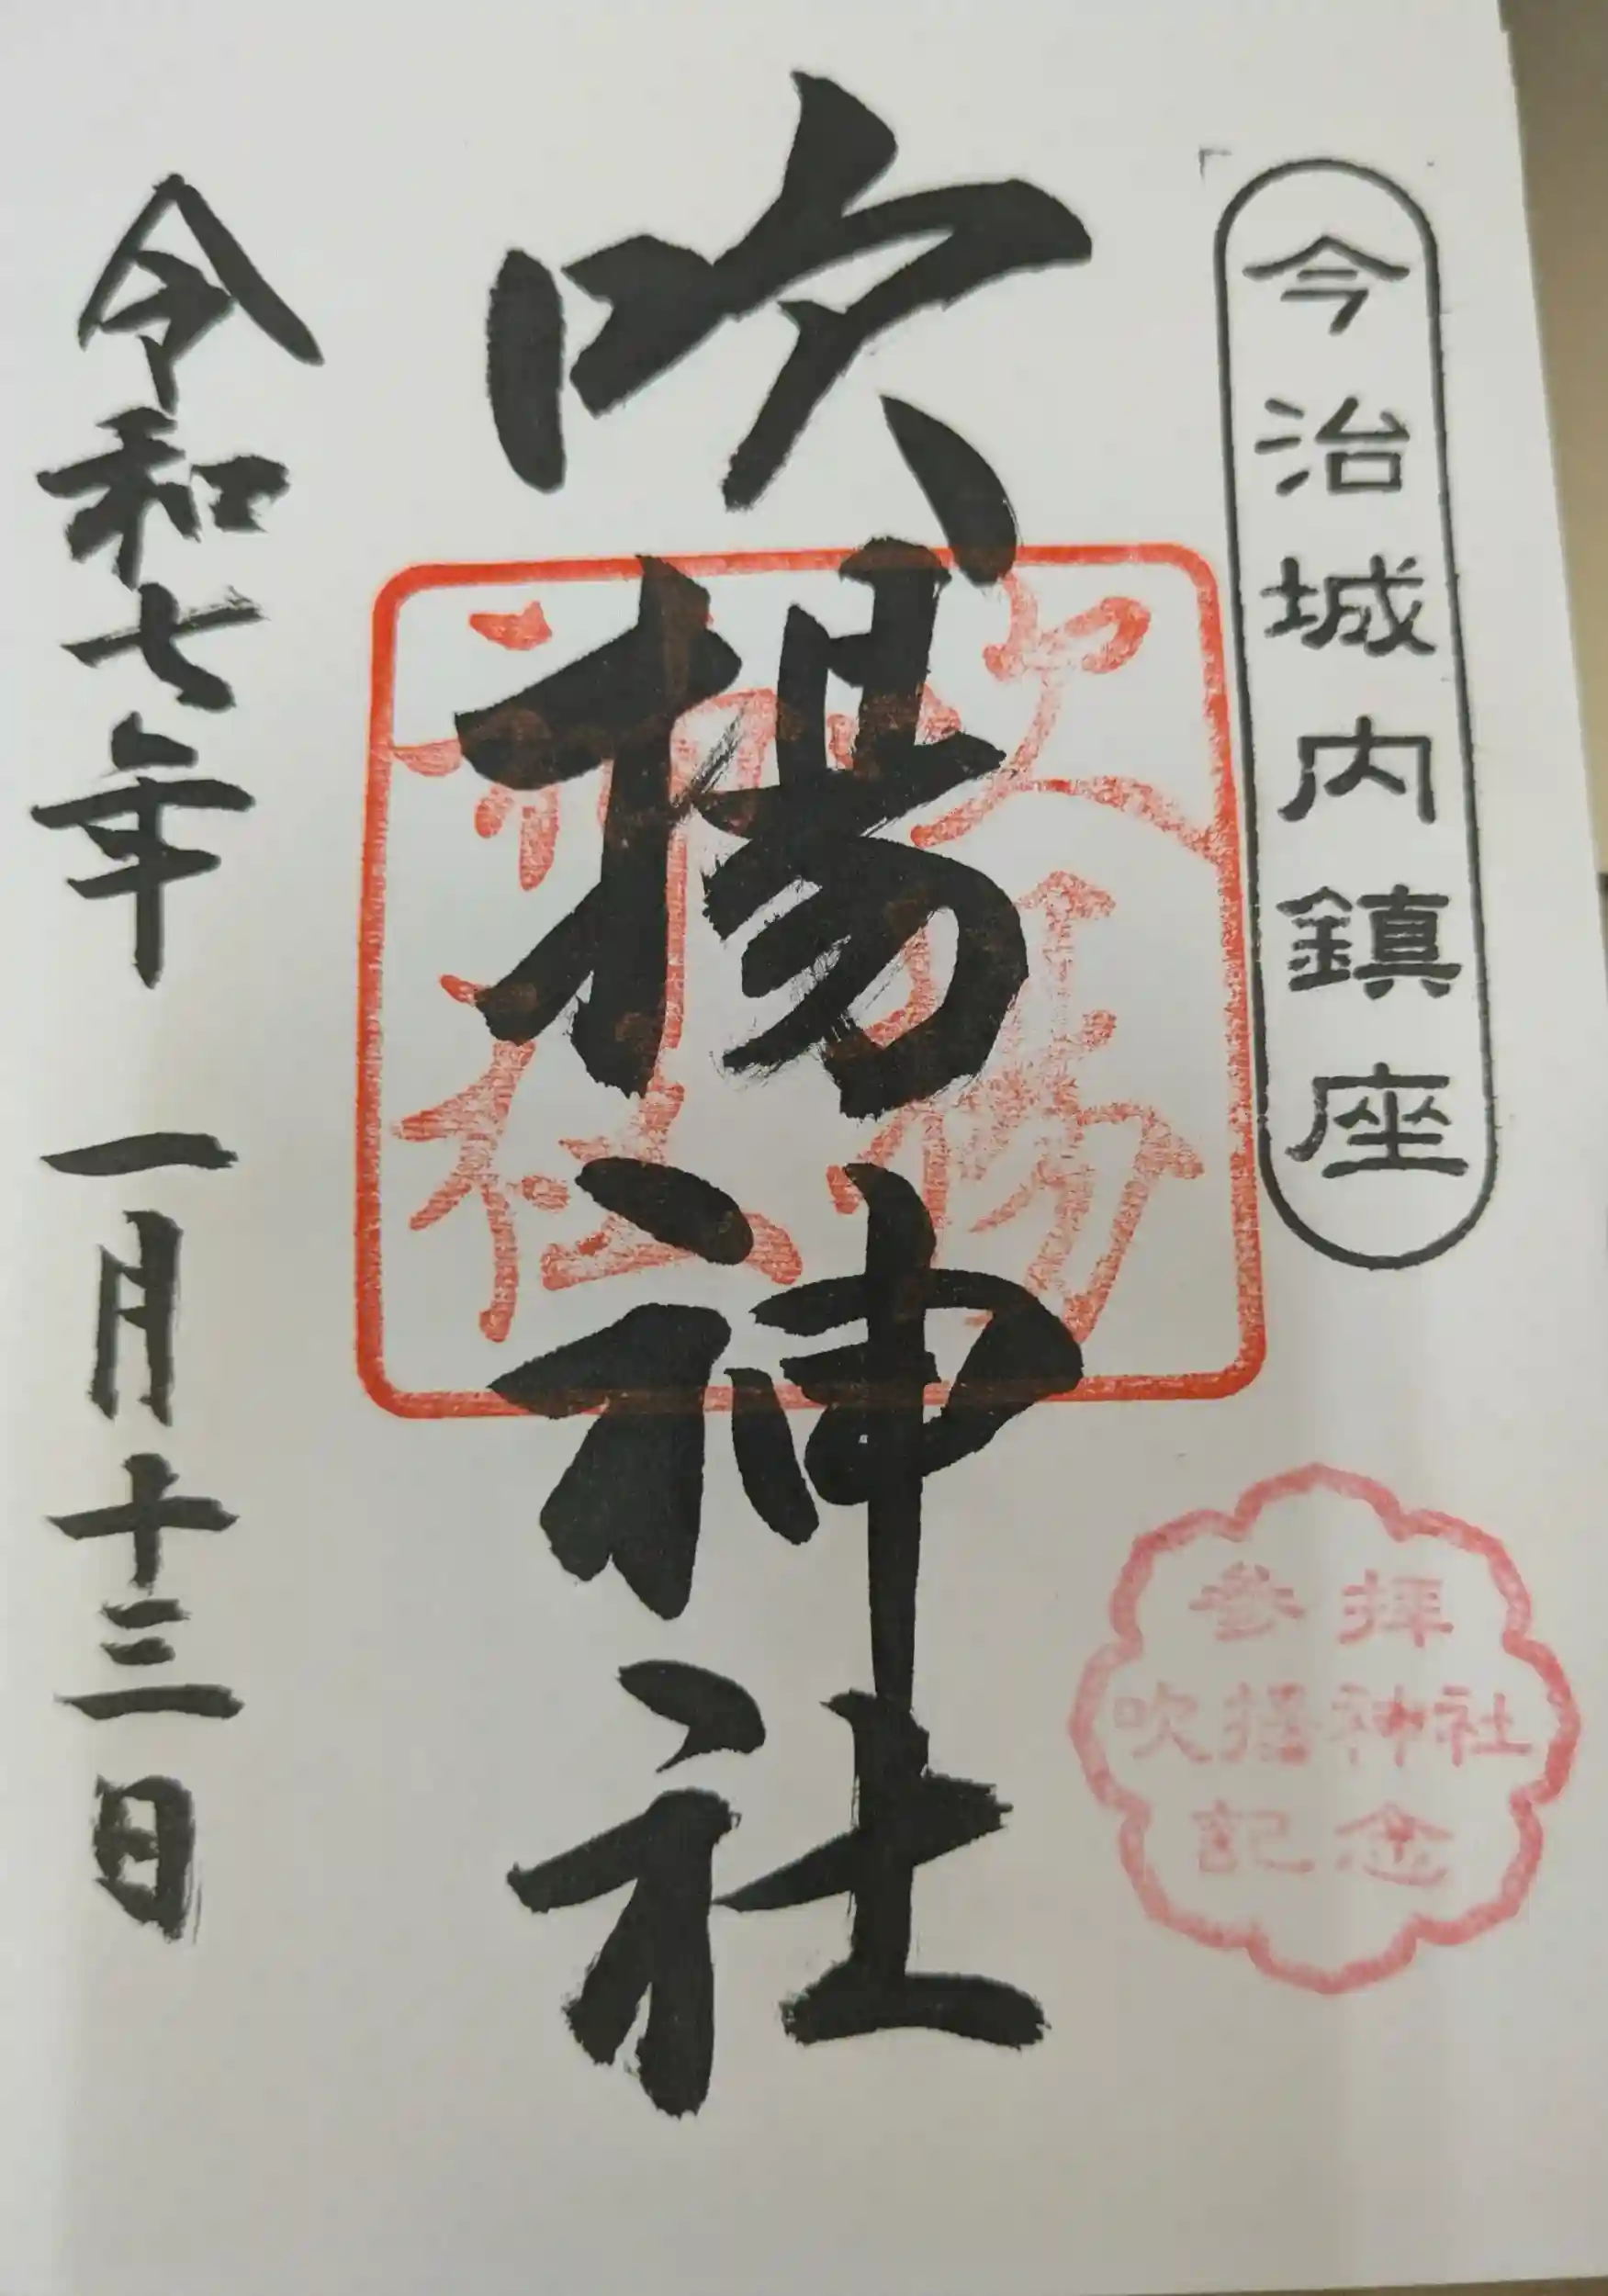 今治城内鎮座
吹揚神社
吹揚
神社
令和七年 一月十三日
参拝
吹揚神社
記念